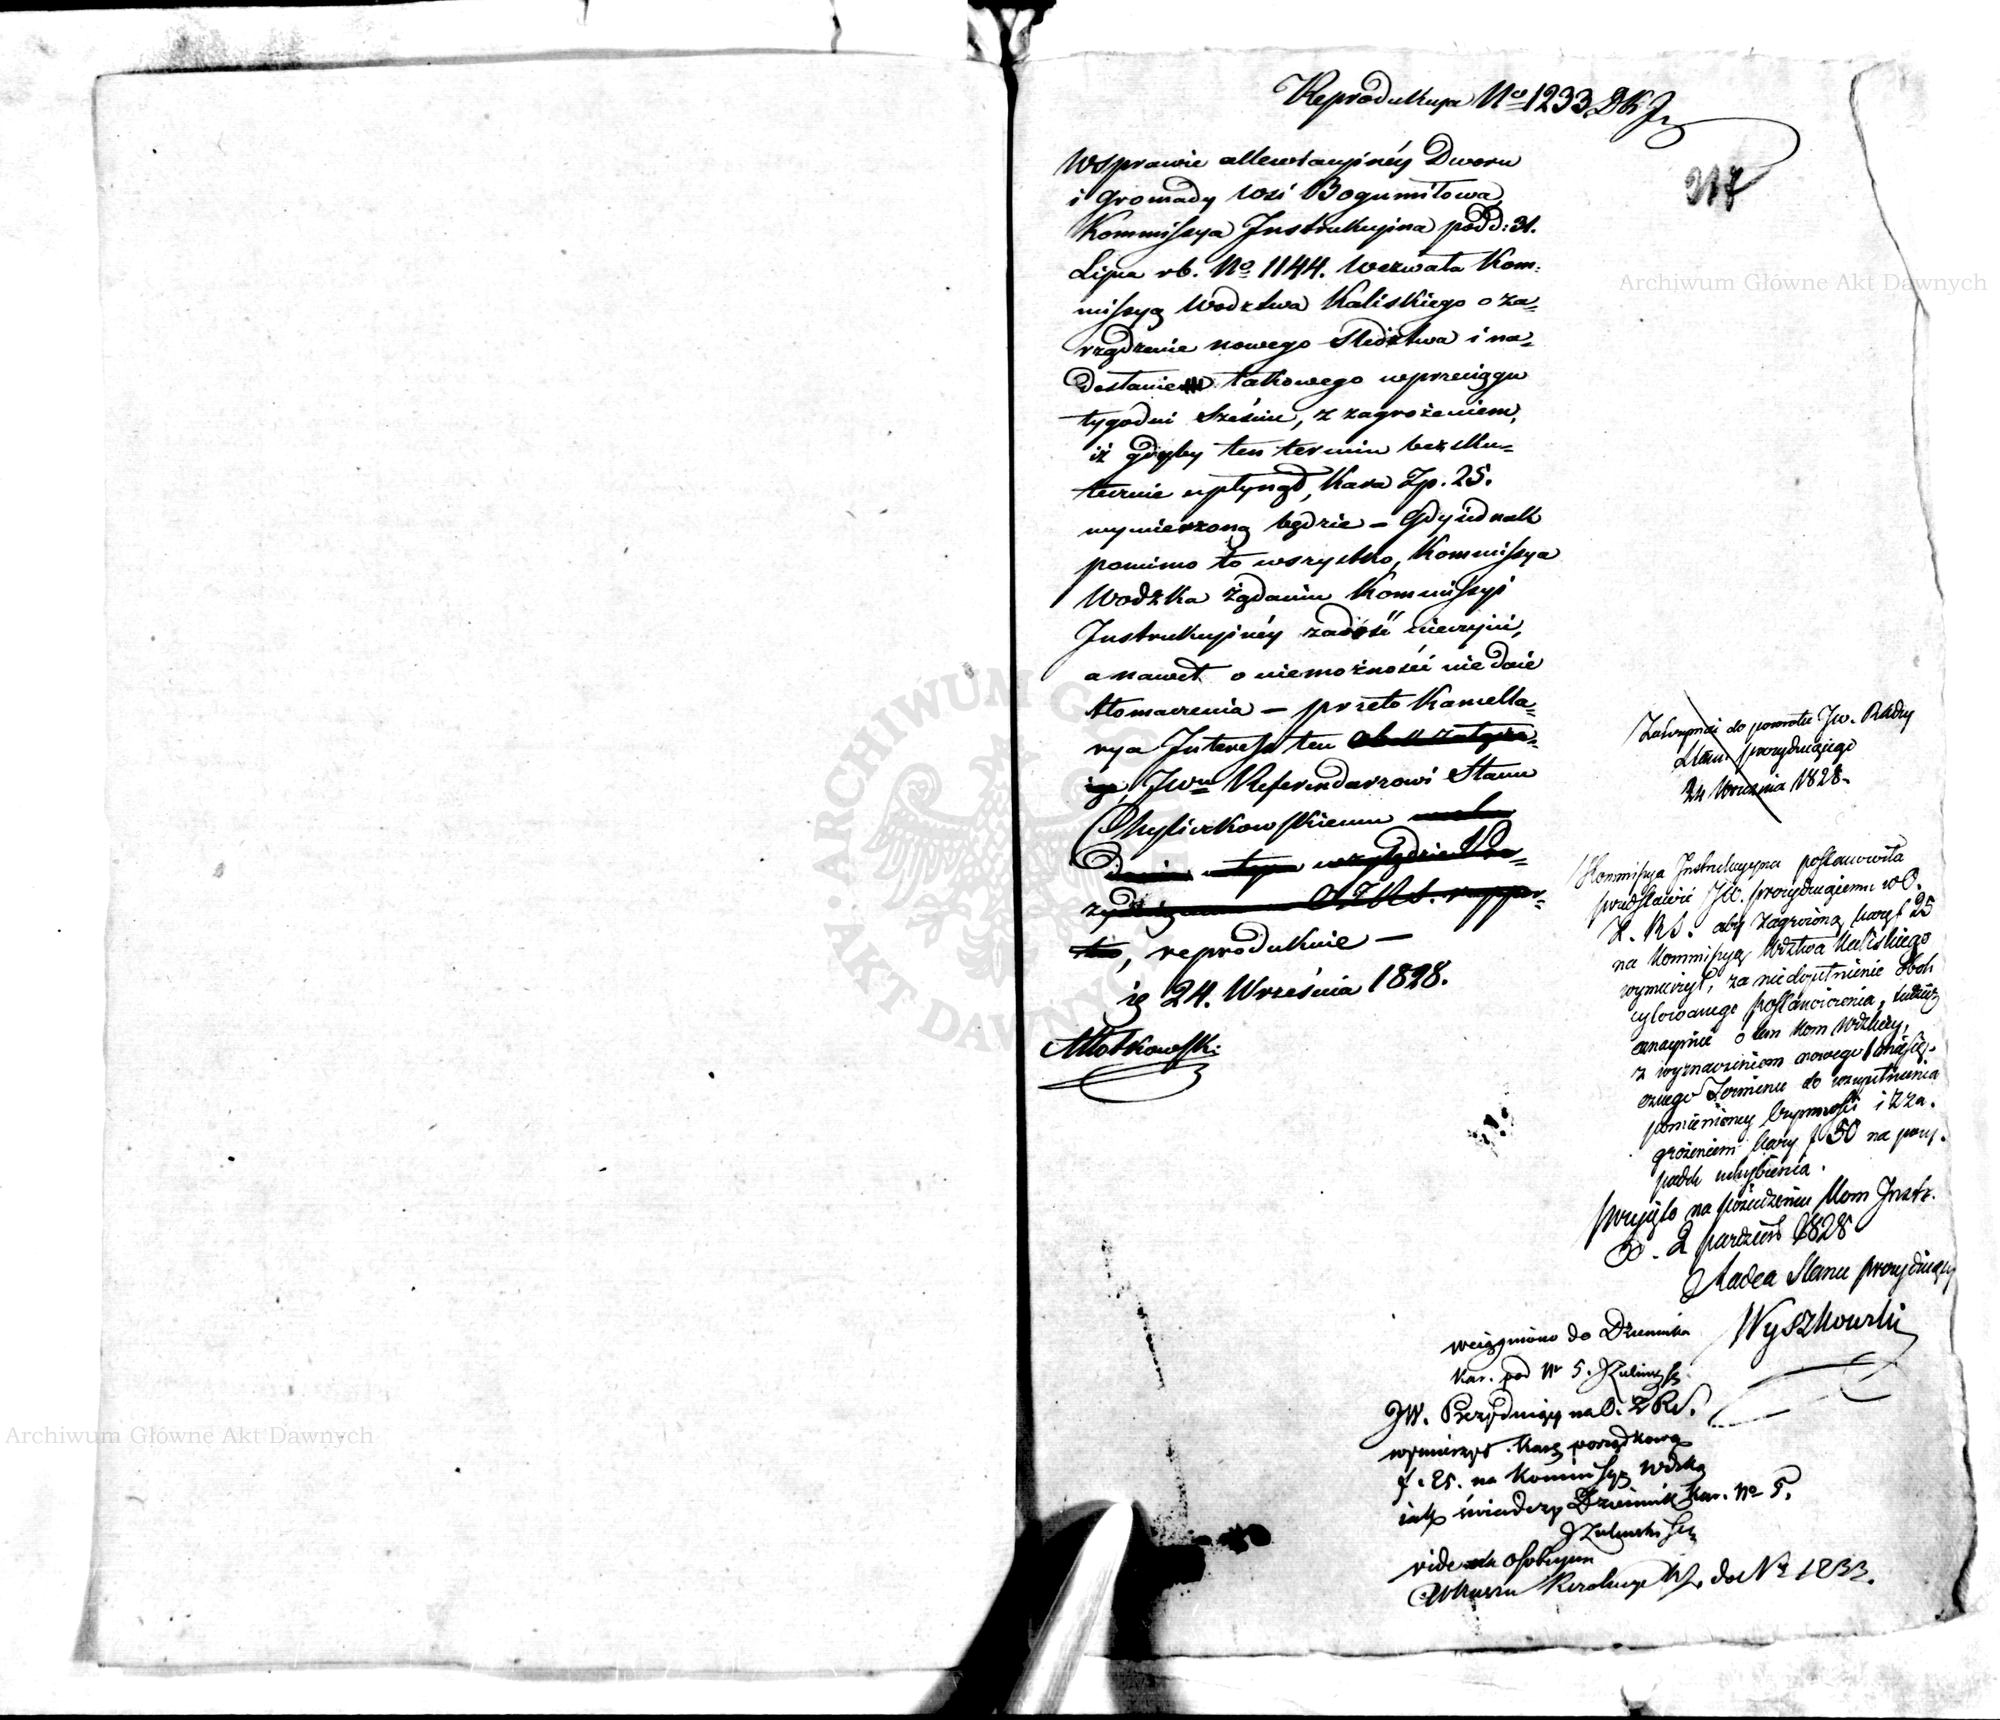 Reprodukcya No 1233 DKJ
217
W sprawie attentacyjnéy Dworu
i gromady wsi Bogumiłowa,
Kommissya Instrukcyina pod d: 31.
Lipca rb. No 1144. wezwała Kom-
missyą Wodztwa Kaliskiego o za-
rządzenie nowego śledztwa i na-
desłanie takowego w przeciągu
tygodni sześciu, z zagrożeniem,
iż gdyby ten termin bezsku-
tecznie upłynął, kara Zp. 25.
wymierzoną będzie – Gdy iednak
pomimo to wszystko, Kommissya
Wodzka żądaniu Kommissyi
Instrukcyinéy zadość nieczyni,
a nawet o niemożności nie daie
tłomaczenia – przeto Kancella-
rya Interess ten
JWu Referendarzowi Stanu
Chyliczkowskiemu
w względzie
, reprodukuie –
ię 24. Września 1828.
Młotkowski
Zatrzymać do powrotu Jw. Radcy
Stanu prezyduiącego
24 Września 1828.
Kommissya Instrukcyina postanowiła
przedstawić JW. prezyduiącemu w D.
aby zagrożoną karę f 25
na Kommissyą Wdztwa Kaliskiego
wymierzył, za niedopełnienie
cytowanego postanowienia, tudzież
oznaymić o tem Kom Wdzkiey,
z wyznaczeniem nowego miesię-
cznego Terminu do uzupełnienia
pomienioney czynności i z za-
grożeniem kary f 50 na przy-
padek uchybienia.
przyięto na posiedzeniu Kom Instr.
D. 2 pazdzier 1828
Radca Stanu prezyduiący
Wyszkowski
wciągniono do Dziennika
kar. pod Nr 5.
JW. Prezyduiący na D.
wymierzył karę porządkową
f. 25. na Kommissyą Wdzką
iak świadczy Dziennik kar. No 5.
vide na osobnym
Arkuszu Rezolucye do Nr 1233.
Archiwum Główne Akt Dawnych
Archiwum Główne Akt Dawnych
ARCHIWUM GŁÓWNE AKT DAWNYCH